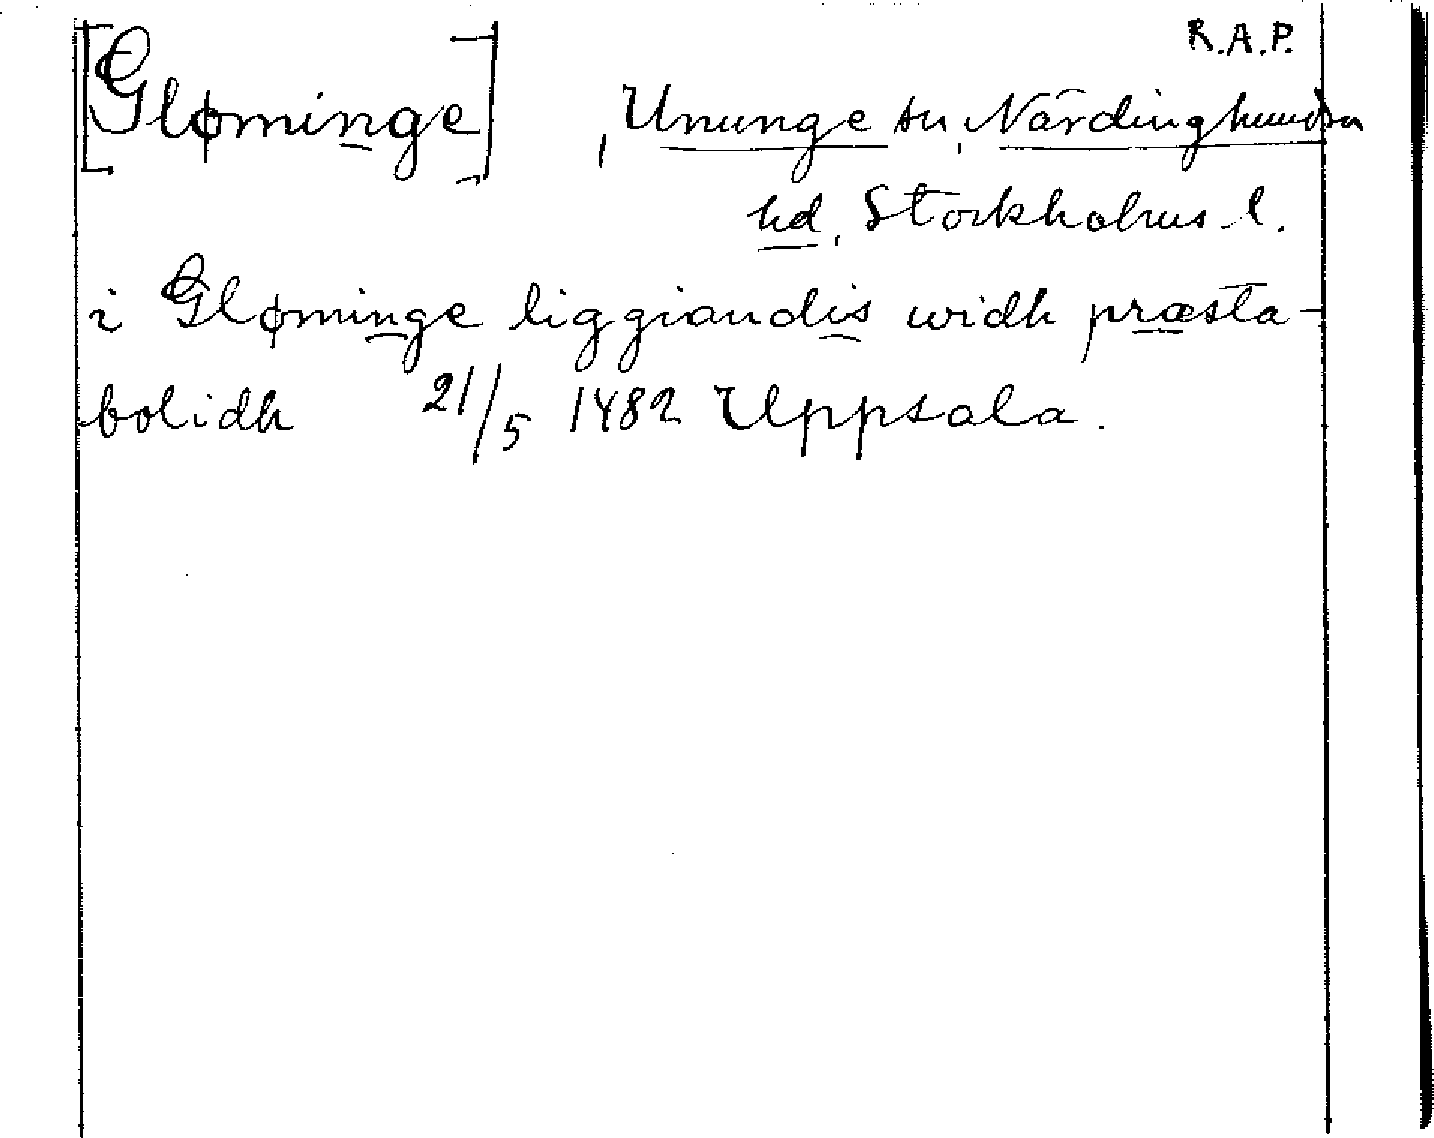 R.A.P.
[Gløminge], Ununge sn, Närdinghundra
hd, Stockholms l.
i Gløminge liggiandis widh præsta-
bolidh 21/5 1482 Uppsala.